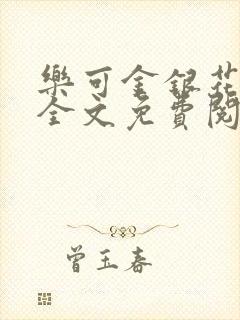 樂可金銀花
全文免費閱
曾玉春